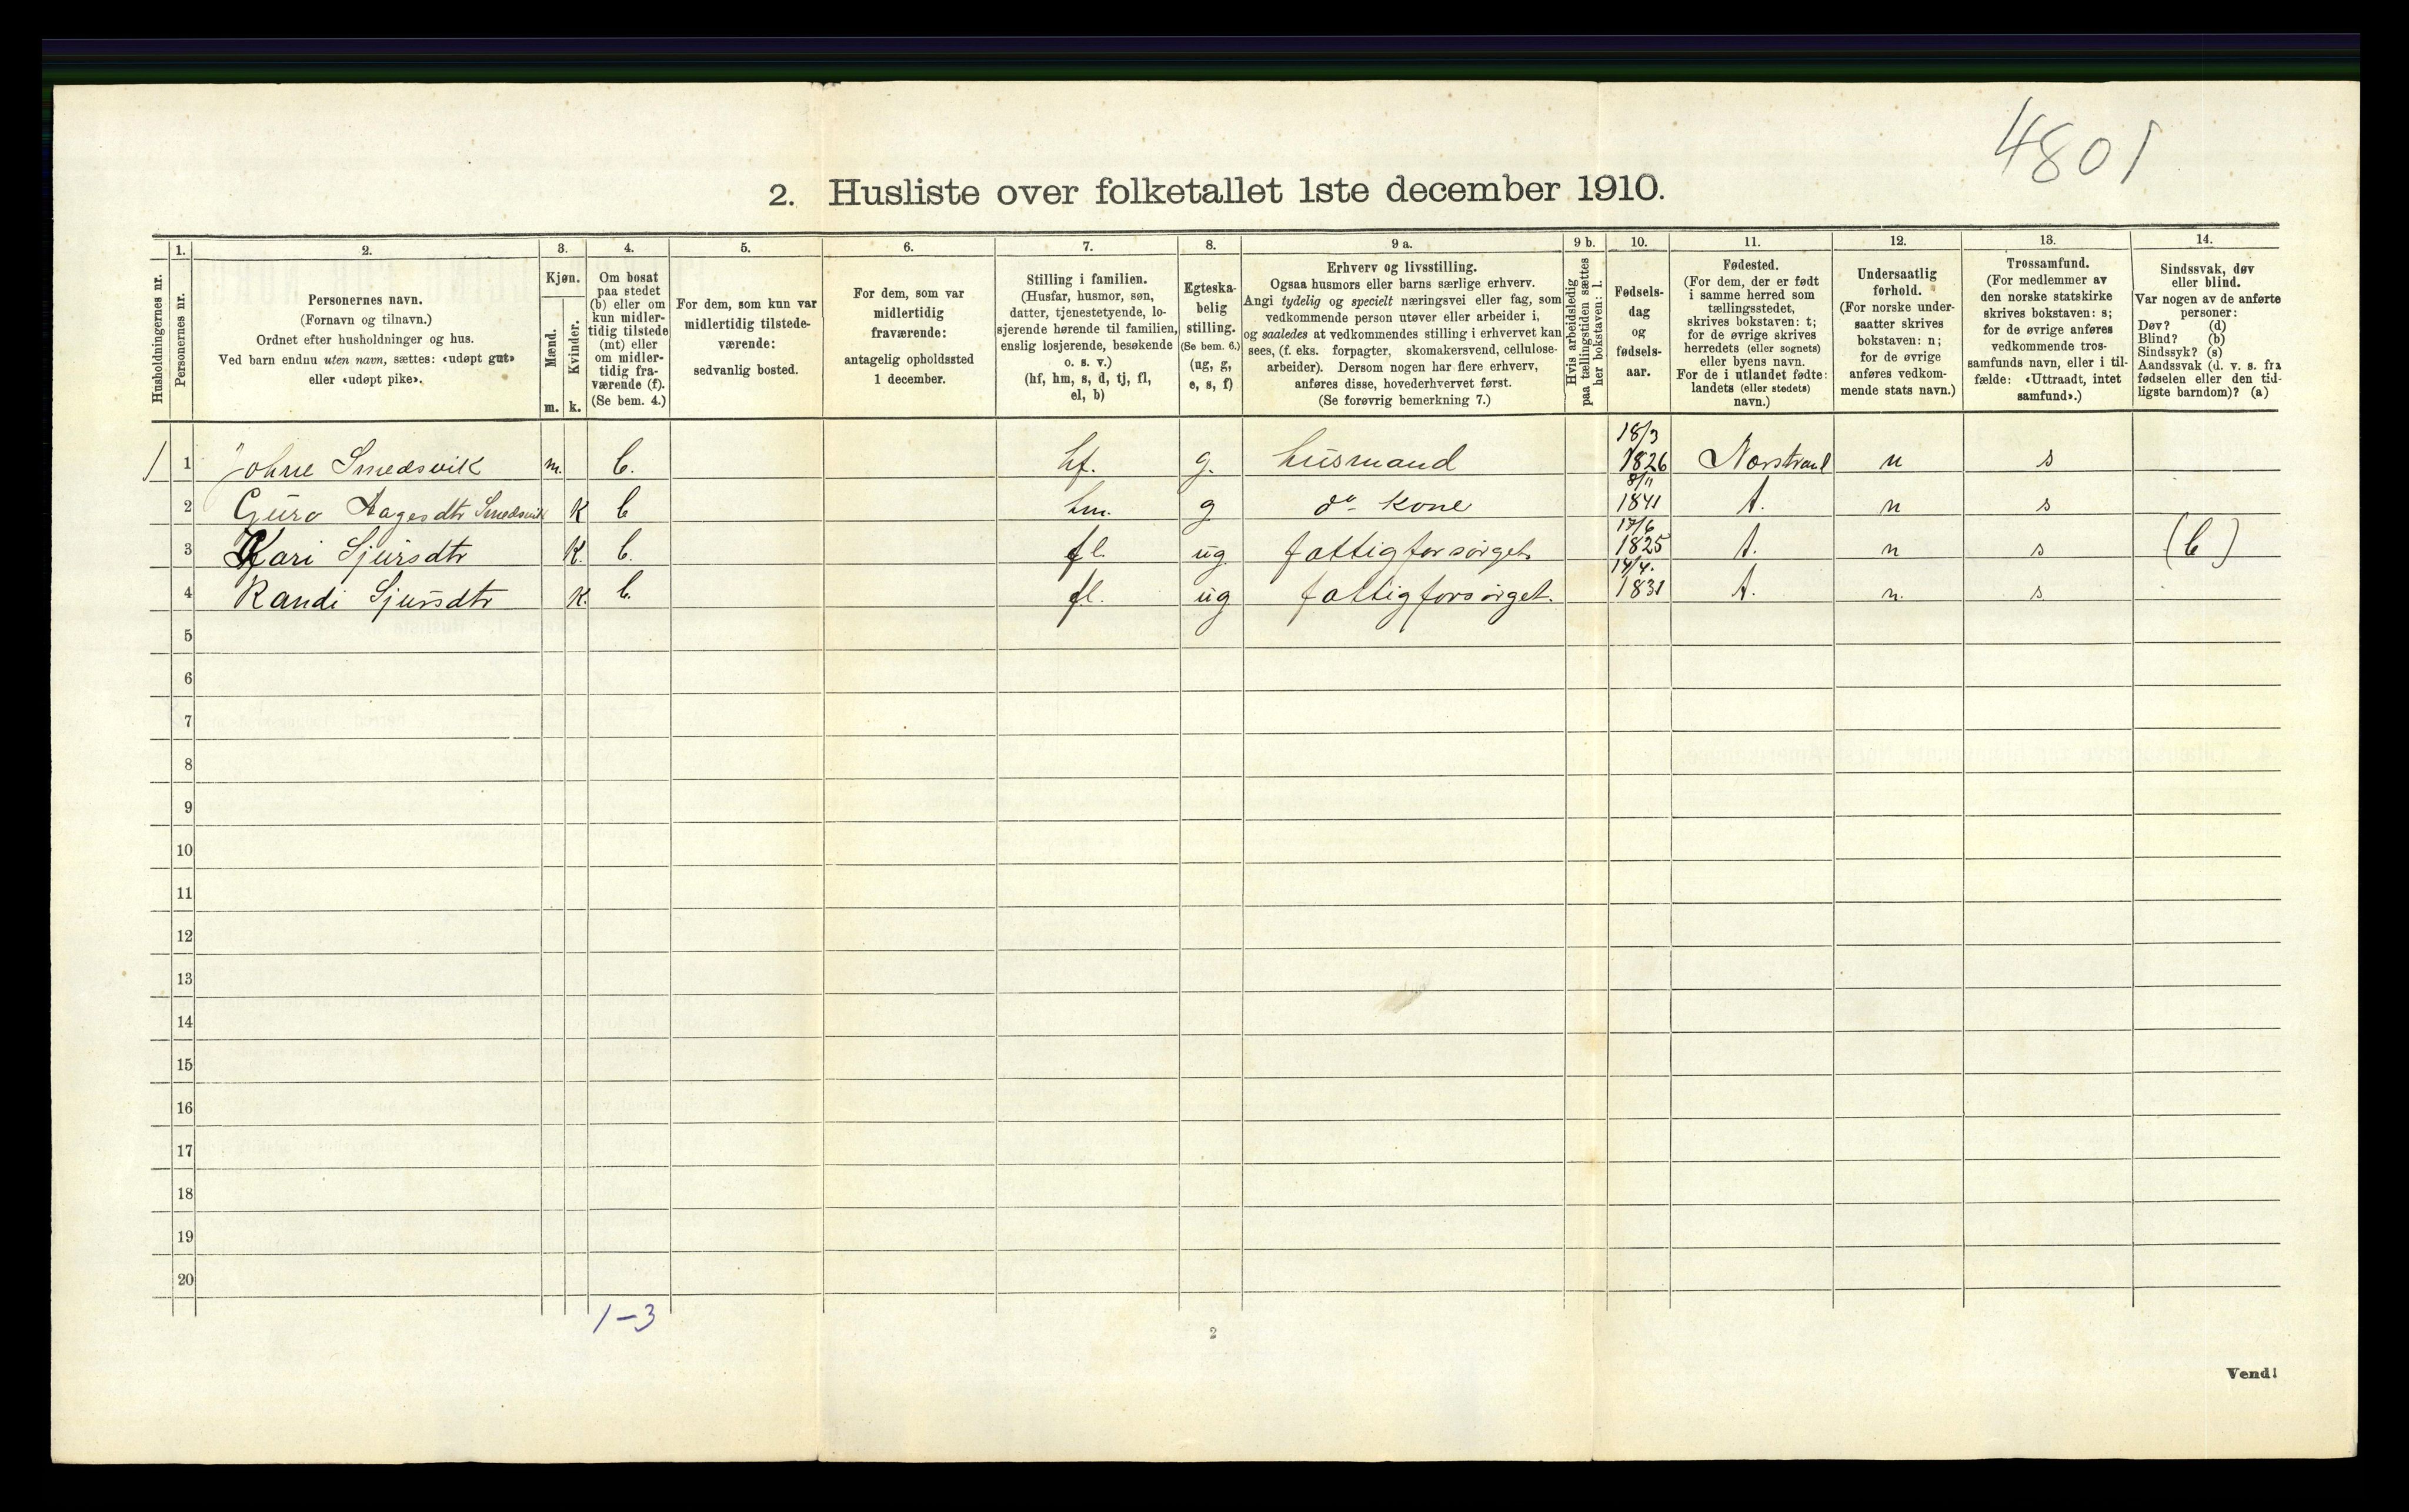 4801
2. Husliste over folketallet 1ste december 1910.
Husholdningernes nr.
1.
Personernes nr.
2.
Personernes navn.
(Fornavn og tilnavn.)
Ordnet efter husholdninger og hus.
Ved barn endnu uten navn, sættes: «udøpt gut»
eller «udøpt pike».
3.
Kjøn.
Mænd.
Kvinder.
m. k.
4.
Om bosat
paa stedet
(b) eller om
kun midler-
tidig tilstede
(mt) eller
om midler-
tidig fra-
værende (f).
(Se bem. 4.)
5.
For dem, som kun var
midlertidig tilstede-
værende:
sedvanlig bosted.
6.
For dem, som var
midlertidig
fraværende:
antagelig opholdssted
1 december.
7.
Stilling i familien.
(Husfar, husmor, søn,
datter, tjenestetyende, lo-
sjerende hørende til familien,
enslig losjerende, besøkende
o. s. v.)
(hf, hm, s, d, tj, fl,
el, b)
8.
Egteska-
belig
stilling.
(Se bem. 6.)
(ug, g,
e, s, f)
9 a.
Erhverv og livsstilling.
Ogsaa husmors eller barns særlige erhverv.
Angi tydelig og specielt næringsvei eller fag, som
vedkommende person utøver eller arbeider i,
og saaledes at vedkommendes stilling i erhvervet kan
sees, (f. eks. forpagter, skomakersvend, cellulose-
arbeider). Dersom nogen har flere erhverv,
anføres disse, hovederhvervet først.
(Se forøvrig bemerkning 7.)
9 b.
Hvis arbeidsledig
paa tællingstiden sættes
her bokstaven: l.
10.
Fødsels-
dag
og
fødsels-
aar.
11.
Fødested.
(For dem, der er født
i samme herred som
tællingsstedet,
skrives bokstaven: t;
for de øvrige skrives
herredets (eller sognets)
eller byens navn.
For de i utlandet fødte:
landets (eller stedets)
navn.)
12.
Undersaatlig
forhold.
(For norske under-
saatter skrives
bokstaven: n;
for de øvrige
anføres vedkom-
mende stats navn.)
13.
Trossamfund.
(For medlemmer av
den norske statskirke
skrives bokstaven: s;
for de øvrige anføres
vedkommende tros-
samfunds navn, eller i til-
fælde: «Uttraadt, intet
samfund».)
14.
Sindssvak, døv
eller blind.
Var nogen av de anførte
personer:
Døv? (d)
Blind? (b)
Sindssyk? (s)
Aandssvak (d. v. s. fra
fødselen eller den tid-
ligste barndom)? (a)
1 1 Johne Smedsvik m. b. hf. g. husmand 18/3 1826 Norstrand n s
2 Guro Aagesdtr Smedsvik K b hm. g do kone 8/11 1841 t. n s
3 Kari Sjursdtr K. b. fl. ug fattigforsørget 17/6 1825 t. n s (b)
4 Randi Sjursdtr K. b. fl. ug fattigforsørget. 14/4. 1831 t. n. s
5
6
7
8
9
10
11
12
13
14
15
16
17
18
19
20
1-3
2
Vend!